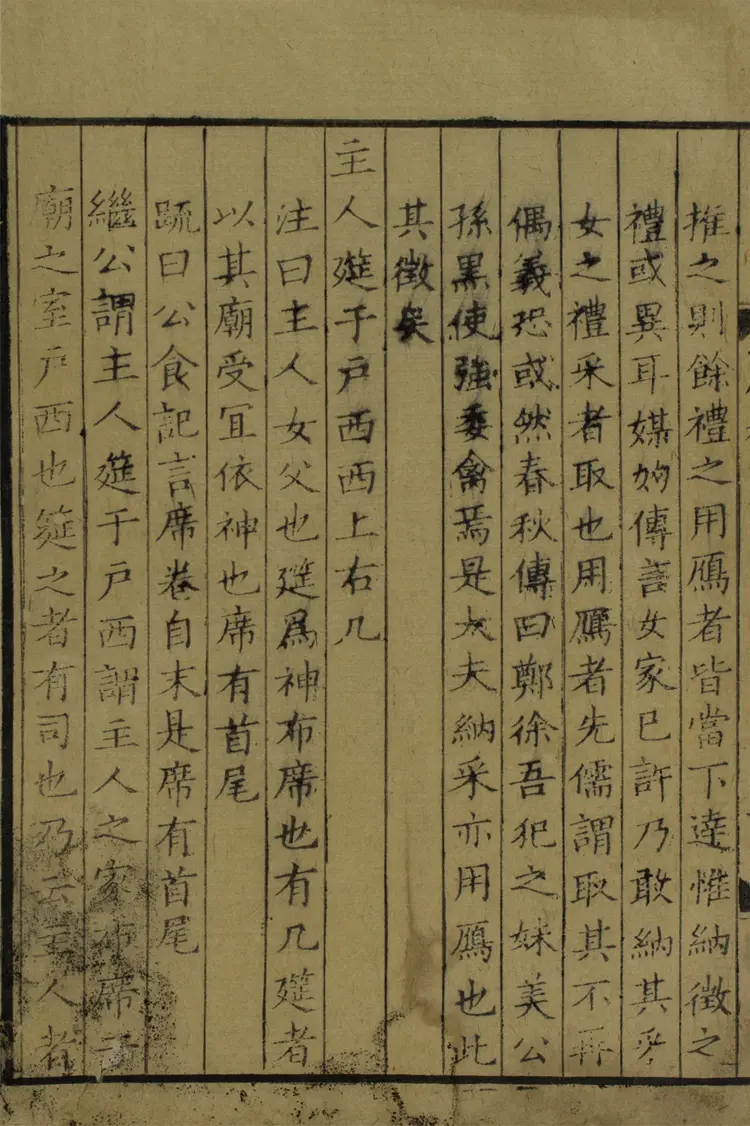 推之則餘禮之用鴈者皆當下達惟納徵之
禮或異耳媒妁傳言女家已許乃敢納其采
女之禮采者取也用鴈者先儒謂取其不再
偶義恐或然春秋傳曰鄭徐吾犯之妹美公
孫黑使強委禽焉是大夫納采亦用鴈也此
其徵矣
主人筵于戶西西上右几
注曰主人女父也筵爲神布席也有几筵者
以其廟受冝依神也席有首尾
䟽曰公食記言席卷自末是席有首尾
繼公謂主人筵于戶西謂主人之家布席于
廟之室戶西也筵之者有司也乃云主人者